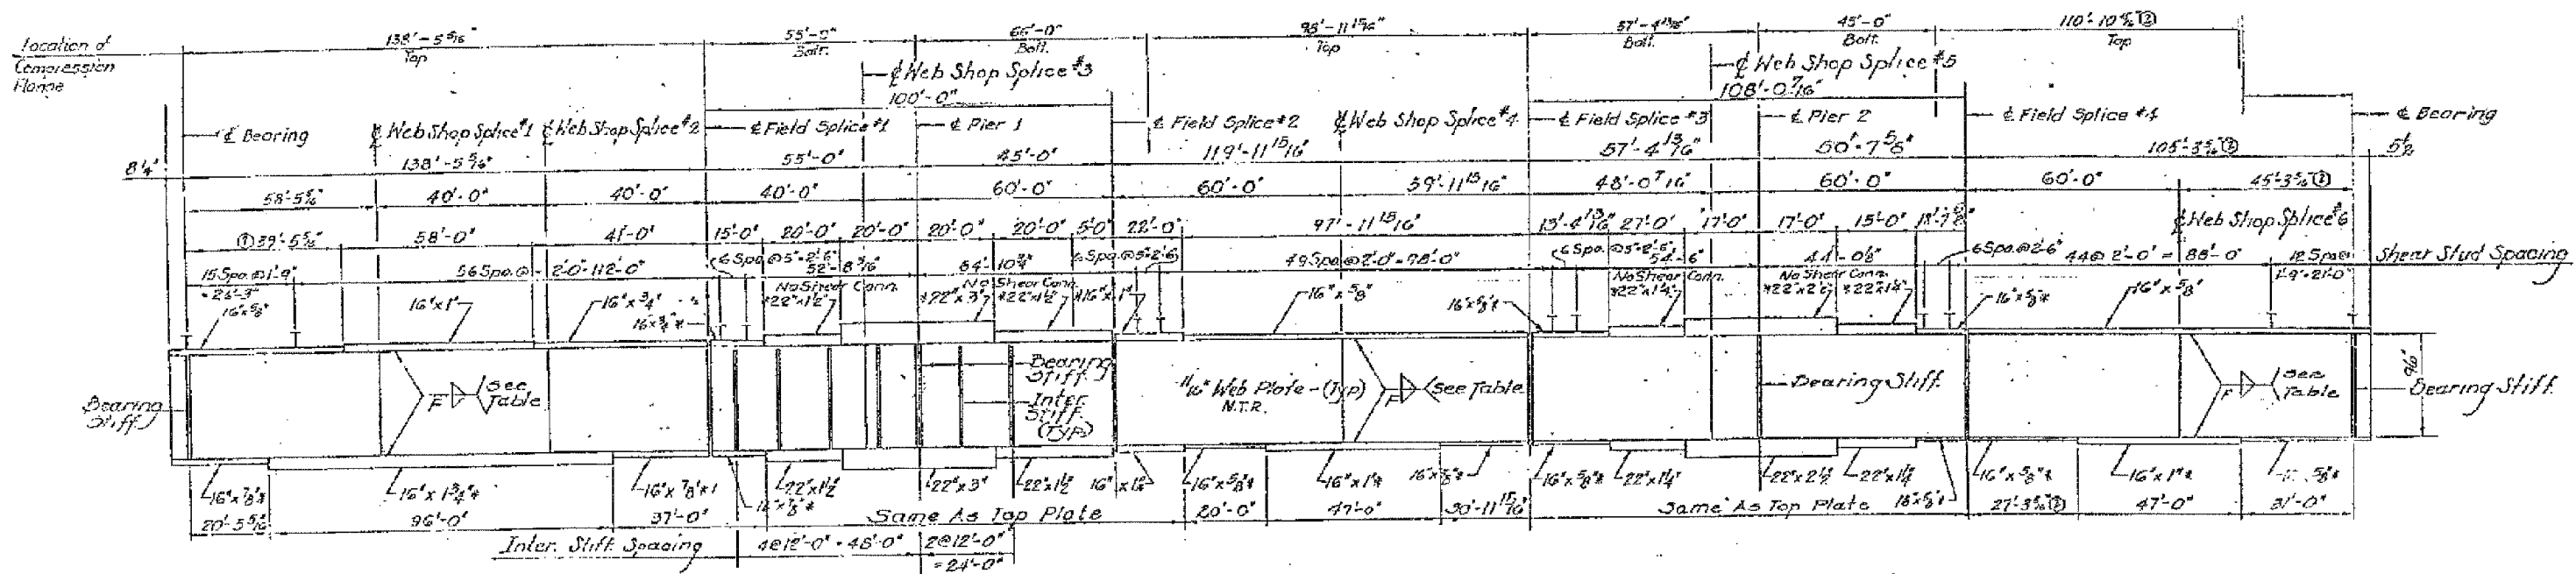 Location of
Compression
Flange
138'-5 5/16"
Top
55'-0"
Bott.
66'-0"
Bott.
98'-11 15/16"
Top
57'-4 13/16"
Bott.
45'-0"
Bott.
110'-10 5/16" ②
Top
℄ Web Shop Splice #3
100'-0"
℄ Web Shop Splice #5
108'-0 7/16"
℄ Bearing
℄ Web Shop Splice #1
℄ Web Shop Splice #2
℄ Field Splice #1
℄ Pier 1
℄ Field Splice #2
℄ Web Shop Splice #4
℄ Field Splice #3
℄ Pier 2
℄ Field Splice #4
℄ Bearing
8 1/4"
138'-5 5/16"
55'-0"
45'-0"
119'-11 15/16"
57'-4 13/16"
50'-7 5/8"
105'-3 5/16" ②
5 1/2
58'-5 5/16"
40'-0"
40'-0"
40'-0"
60'-0"
60'-0"
59'-11 15/16"
48'-0 7/16"
60'-0"
60'-0"
45'-3 5/16" ②
① 39'-5 5/16"
58'-0"
41'-0"
15'-0"
20'-0"
20'-0"
20'-0"
20'-0"
5'-0"
22'-0"
97'-11 15/16"
13'-4 13/16"
27'-0"
17'-0"
17'-0"
15'-0"
℄ Web Shop Splice #6
15 Spa. @ 1'-9"
= 26'-3"
56 Spa. @ 2'-0" = 112'-0"
6 Spa. @ 5" = 2'-6"
52'-8 5/16"
No Shear Conn.
64'-10 3/4"
No Shear Conn.
6 Spa. @ 5" = 2'-6"
49 Spa. @ 2'-0" = 98'-0"
6 Spa. @ 5" = 2'-6"
54'-6"
No Shear Conn.
44'-0 1/2"
No Shear Conn.
6 Spa. @ 2'-6"
44 @ 2'-0" = 88'-0"
12 Spa. @
1'-9" = 21'-0"
Shear Stud Spacing
16" x 5/8"
16" x 1"
16" x 3/4"
16" x 3/4" *
*22" x 1 1/2"
*22" x 3"
*22" x 1 1/2"
*16" x 1"
16" x 5/8"
16" x 5/8" *
*22" x 1 1/4"
*22" x 2 1/2"
*22" x 1 1/4"
16" x 5/8" *
16" x 5/8"
Bearing
Stiff.
F
See
Table
Bearing
Stiff.
Inter.
Stiff.
(Typ.)
11/16" Web Plate - (Typ)
N.T.R.
F
See Table
Bearing Stiff.
F
See
Table
96"
Bearing Stiff.
16" x 7/8" *
16" x 1 3/4" *
16" x 7/8" *
16" x 7/8" *
22" x 1 1/2"
22" x 3"
22" x 1 1/2"
16" x 1" *
16" x 5/8" *
16" x 1" *
16" x 5/8" *
16" x 5/8" *
22" x 1 1/4"
22" x 2 1/2"
22" x 1 1/4"
16" x 5/8" *
16" x 5/8" *
16" x 1" *
5/8" *
20'-5 5/16"
96'-0"
37'-0"
Same As Top Plate
20'-0"
47'-0"
30'-11 15/16"
Same As Top Plate
27'-3 5/16" ②
47'-0"
31'-0"
Inter. Stiff. Spacing
4 @ 12'-0" = 48'-0"
2 @ 12'-0"
= 24'-0"